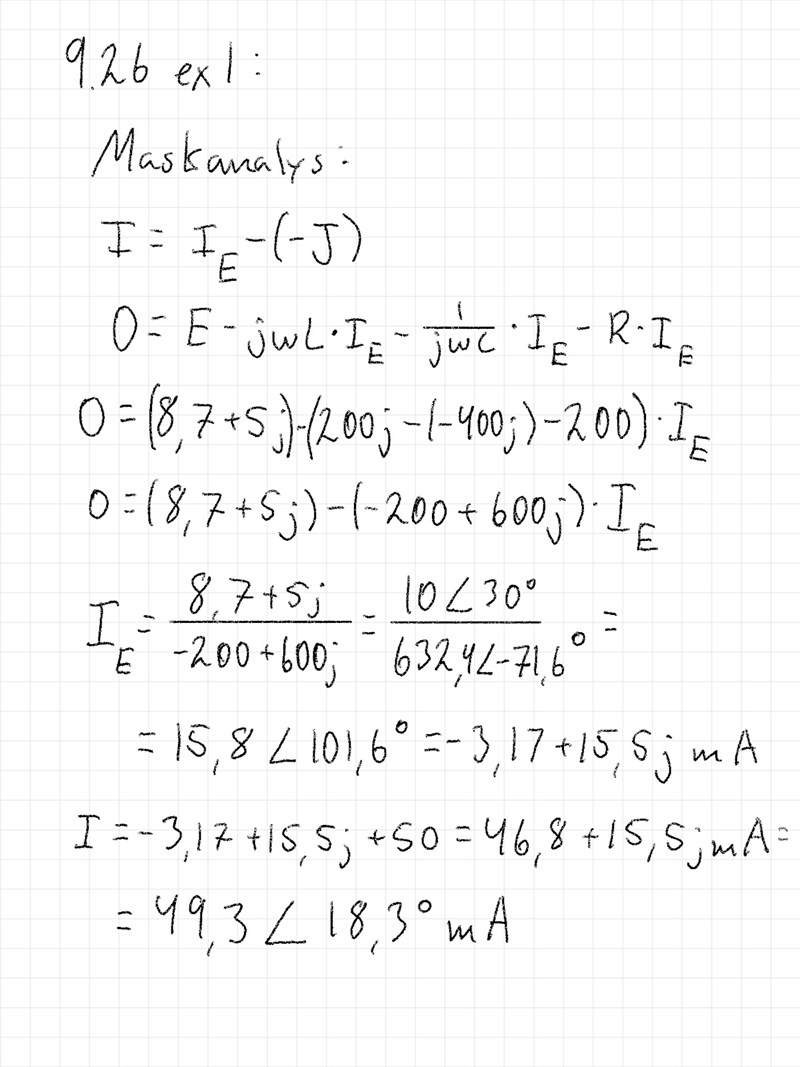 9.26 ex1:
Maskanalys:
I = I_E - (-J)
0 = E - jwL · I_E - 1/jwC · I_E - R · I_E
0 = (8,7+5j) - (200j - (-400j) - 200) · I_E
0 = (8,7+5j) - (-200 + 600j) · I_E
I_E = 8,7+5j / -200+600j = 10∠30° / 632,4∠-71,6° =
= 15,8 ∠101,6° = -3,17+15,5j mA
I = -3,17 +15,5j +50 = 46,8 +15,5j mA =
= 49,3 ∠ 18,3° mA